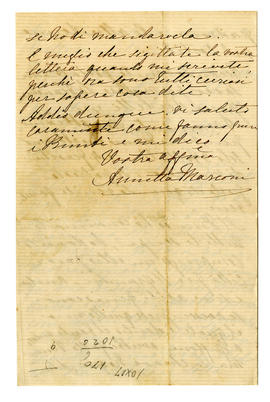 se No di mandarvela.
E meglio che sigillate la vostra
lettera quando mi scrivete
perchè ora sono tutti curiosi
per sapere cosa dite.
Addio dunque. Vi saluto
caramente come fanno pure
i Bimbi e mi dico
Vostra affma
Annetta Marconi